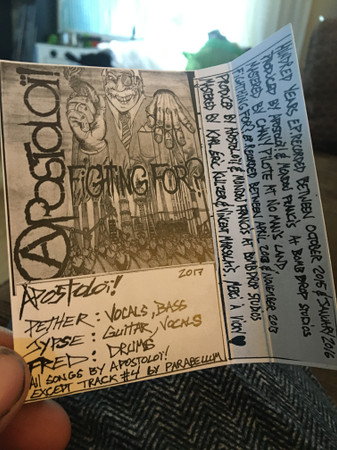 APOSTOLOÏ!
FIGHTING FOR?
2017
APOSTOLOÏ!
PETHER : VOCALS, BASS
JYPSE : GUITAR, VOCALS
FRED : DRUMS
All SONGS BY APOSTOLOÏ!
EXCEPT TRACK #4 by PARABELLUM
HUNTED YEARS EP RECORDED BETWEEN OCTOBER 2015 & JANUARY 2016
PRODUCED BY APOSTOLOÏ & FRANCIS AT BOMB DROP STUDIOS
MASTERED BY CHANY PILOTE AT NO MAN'S LAND.
FIGHTING FOR? RECORDED BETWEEN APRIL & NOVEMBER
PRODUCED BY APOSTOLOÏ & FRANCIS AT BOMB DROP STUDIOS
MASTERED BY KARL ERIC & VINCENT MERCI À VOUS